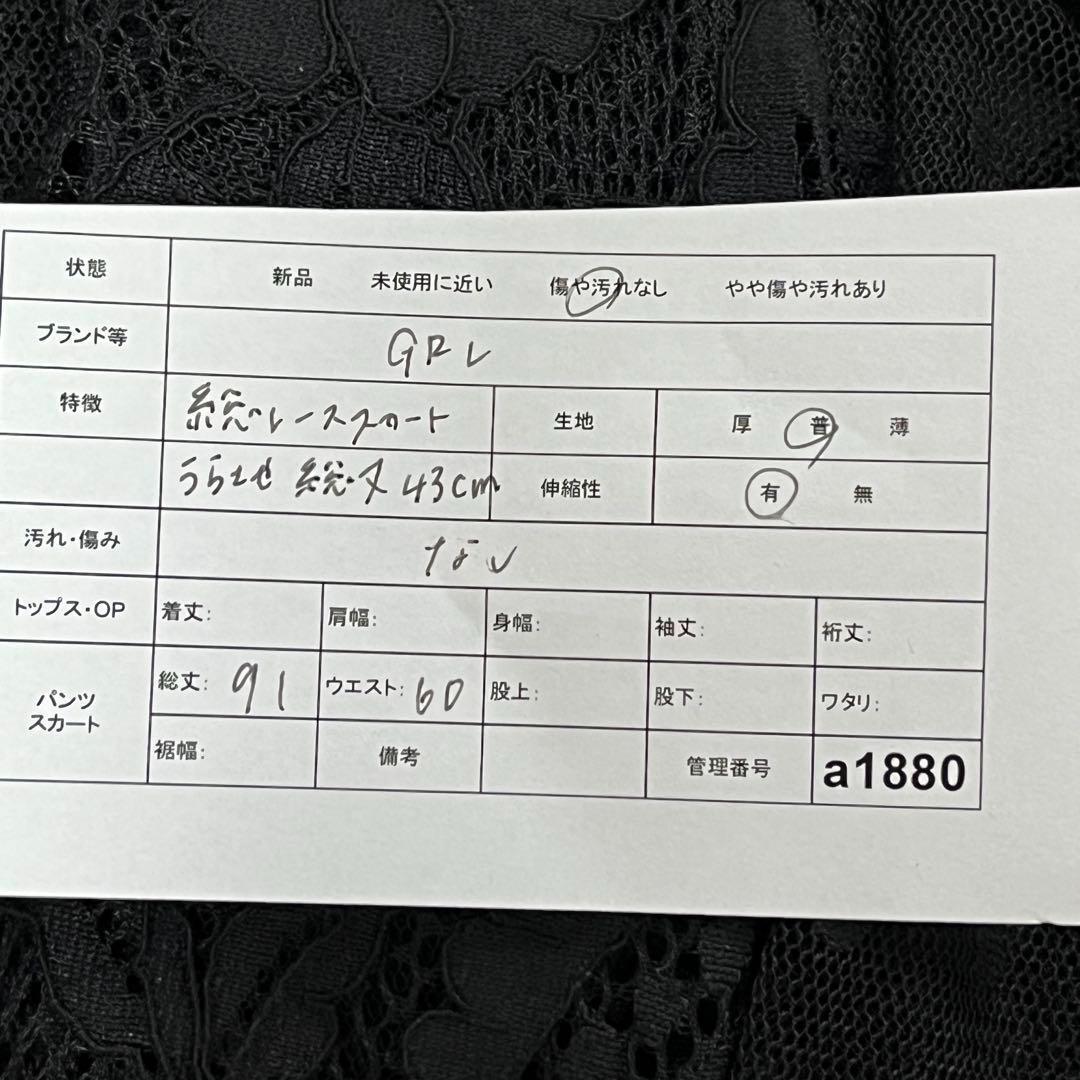 状態 新品 未使用に近い 傷や汚れなし やや傷や汚れあり
ブランド等 GRL
特徴 総レーススカート 生地 厚 普 薄
うらなせ 総丈 43cm 伸縮性 有 無
汚れ・傷み なし
トップス・OP 着丈: 肩幅: 身幅: 袖丈: 裄丈:
パンツ
スカート
総丈: 91 ウエスト: 60 股上: 股下: ワタリ:
裾幅: 備考 管理番号 a1880